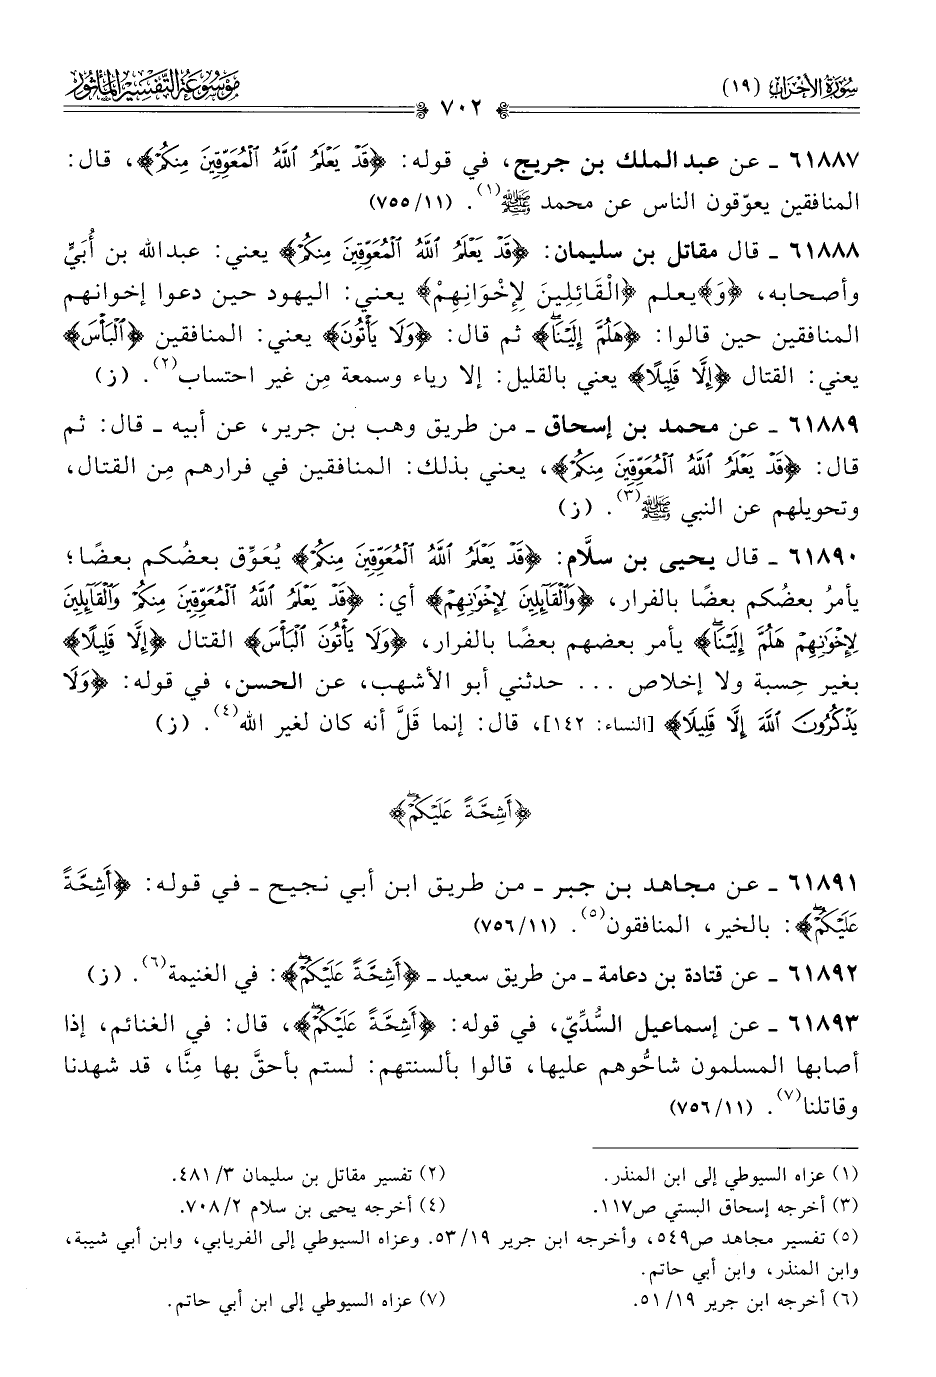 سُورَةُ الأَحْزَابِ (١٩)
٧٠٢
مَوْسُوعَةُ التَّفْسِيرِ المَأْثُورِ
٦١٨٨٧ ـ عن عبد الملك بن جريج، في قوله: ﴿قَدْ يَعْلَمُ ٱللَّهُ ٱلْمُعَوِّقِينَ مِنكُمْ﴾، قال:
المنافقين يعوّقون الناس عن محمد ﷺ(١). (١١/ ٧٥٥)
٦١٨٨٨ ـ قال مقاتل بن سليمان: ﴿قَدْ يَعْلَمُ ٱللَّهُ ٱلْمُعَوِّقِينَ مِنكُمْ﴾ يعني: عبدالله بن أُبَيٍّ
وأصحابه، ﴿وَ﴾يعلم ﴿الْقَائِلِينَ لِإِخْوَانِهِمْ﴾ يعني: اليهود حين دعوا إخوانهم
المنافقين حين قالوا: ﴿هَلُمَّ إِلَيْنَاۖ﴾ ثم قال: ﴿وَلَا يَأْتُونَ﴾ يعني: المنافقين ﴿ٱلْبَأْسَ﴾
يعني: القتال ﴿إِلَّا قَلِيلًا﴾ يعني بالقليل: إلا رياء وسمعة مِن غير احتساب(٢). (ز)
٦١٨٨٩ ـ عن محمد بن إسحاق ـ من طريق وهب بن جرير، عن أبيه ـ قال: ثم
قال: ﴿قَدْ يَعْلَمُ ٱللَّهُ ٱلْمُعَوِّقِينَ مِنكُمْ﴾، يعني بذلك: المنافقين في فرارهم مِن القتال،
وتحويلهم عن النبي ﷺ(٣). (ز)
٦١٨٩٠ ـ قال يحيى بن سلَّام: ﴿قَدْ يَعْلَمُ ٱللَّهُ ٱلْمُعَوِّقِينَ مِنكُمْ﴾ يُعَوِّق بعضُكم بعضًا؛
يأمرُ بعضُكم بعضًا بالفرار، ﴿وَٱلْقَآئِلِينَ لِإِخْوَٰنِهِمْ﴾ أي: ﴿قَدْ يَعْلَمُ ٱللَّهُ ٱلْمُعَوِّقِينَ مِنكُمْ وَٱلْقَآئِلِينَ
لِإِخْوَٰنِهِمْ هَلُمَّ إِلَيْنَاۖ﴾ يأمر بعضهم بعضًا بالفرار، ﴿وَلَا يَأْتُونَ ٱلْبَأْسَ﴾ القتال ﴿إِلَّا قَلِيلًا﴾
بغير حِسبة ولا إخلاص ... حدثني أبو الأشهب، عن الحسن، في قوله: ﴿وَلَا
يَذْكُرُونَ ٱللَّهَ إِلَّا قَلِيلًا﴾ [النساء: ١٤٢]، قال: إنما قَلَّ أنه كان لغير الله(٤). (ز)
﴿أَشِحَّةً عَلَيْكُمْۖ﴾
٦١٨٩١ ـ عن مجاهد بن جبر ـ من طريق ابن أبي نجيح ـ في قوله: ﴿أَشِحَّةً
عَلَيْكُمْۖ﴾: بالخير، المنافقون(٥). (١١/ ٧٥٦)
٦١٨٩٢ ـ عن قتادة بن دعامة ـ من طريق سعيد ـ ﴿أَشِحَّةً عَلَيْكُمْۖ﴾: في الغنيمة(٦). (ز)
٦١٨٩٣ ـ عن إسماعيل السُّدِّيّ، في قوله: ﴿أَشِحَّةً عَلَيْكُمْۖ﴾، قال: في الغنائم، إذا
أصابها المسلمون شاحُّوهم عليها، قالوا بألسنتهم: لستم بأحقَّ بها مِنَّا، قد شهدنا
وقاتلنا(٧). (١١/ ٧٥٦)
(١) عزاه السيوطي إلى ابن المنذر.
(٢) تفسير مقاتل بن سليمان ٣/ ٤٨١.
(٣) أخرجه إسحاق البستي ص١١٧.
(٤) أخرجه يحيى بن سلام ٢/ ٧٠٨.
(٥) تفسير مجاهد ص٥٤٩، وأخرجه ابن جرير ١٩/ ٥٣. وعزاه السيوطي إلى الفريابي، وابن أبي شيبة،
وابن المنذر، وابن أبي حاتم.
(٦) أخرجه ابن جرير ١٩/ ٥١.
(٧) عزاه السيوطي إلى ابن أبي حاتم.